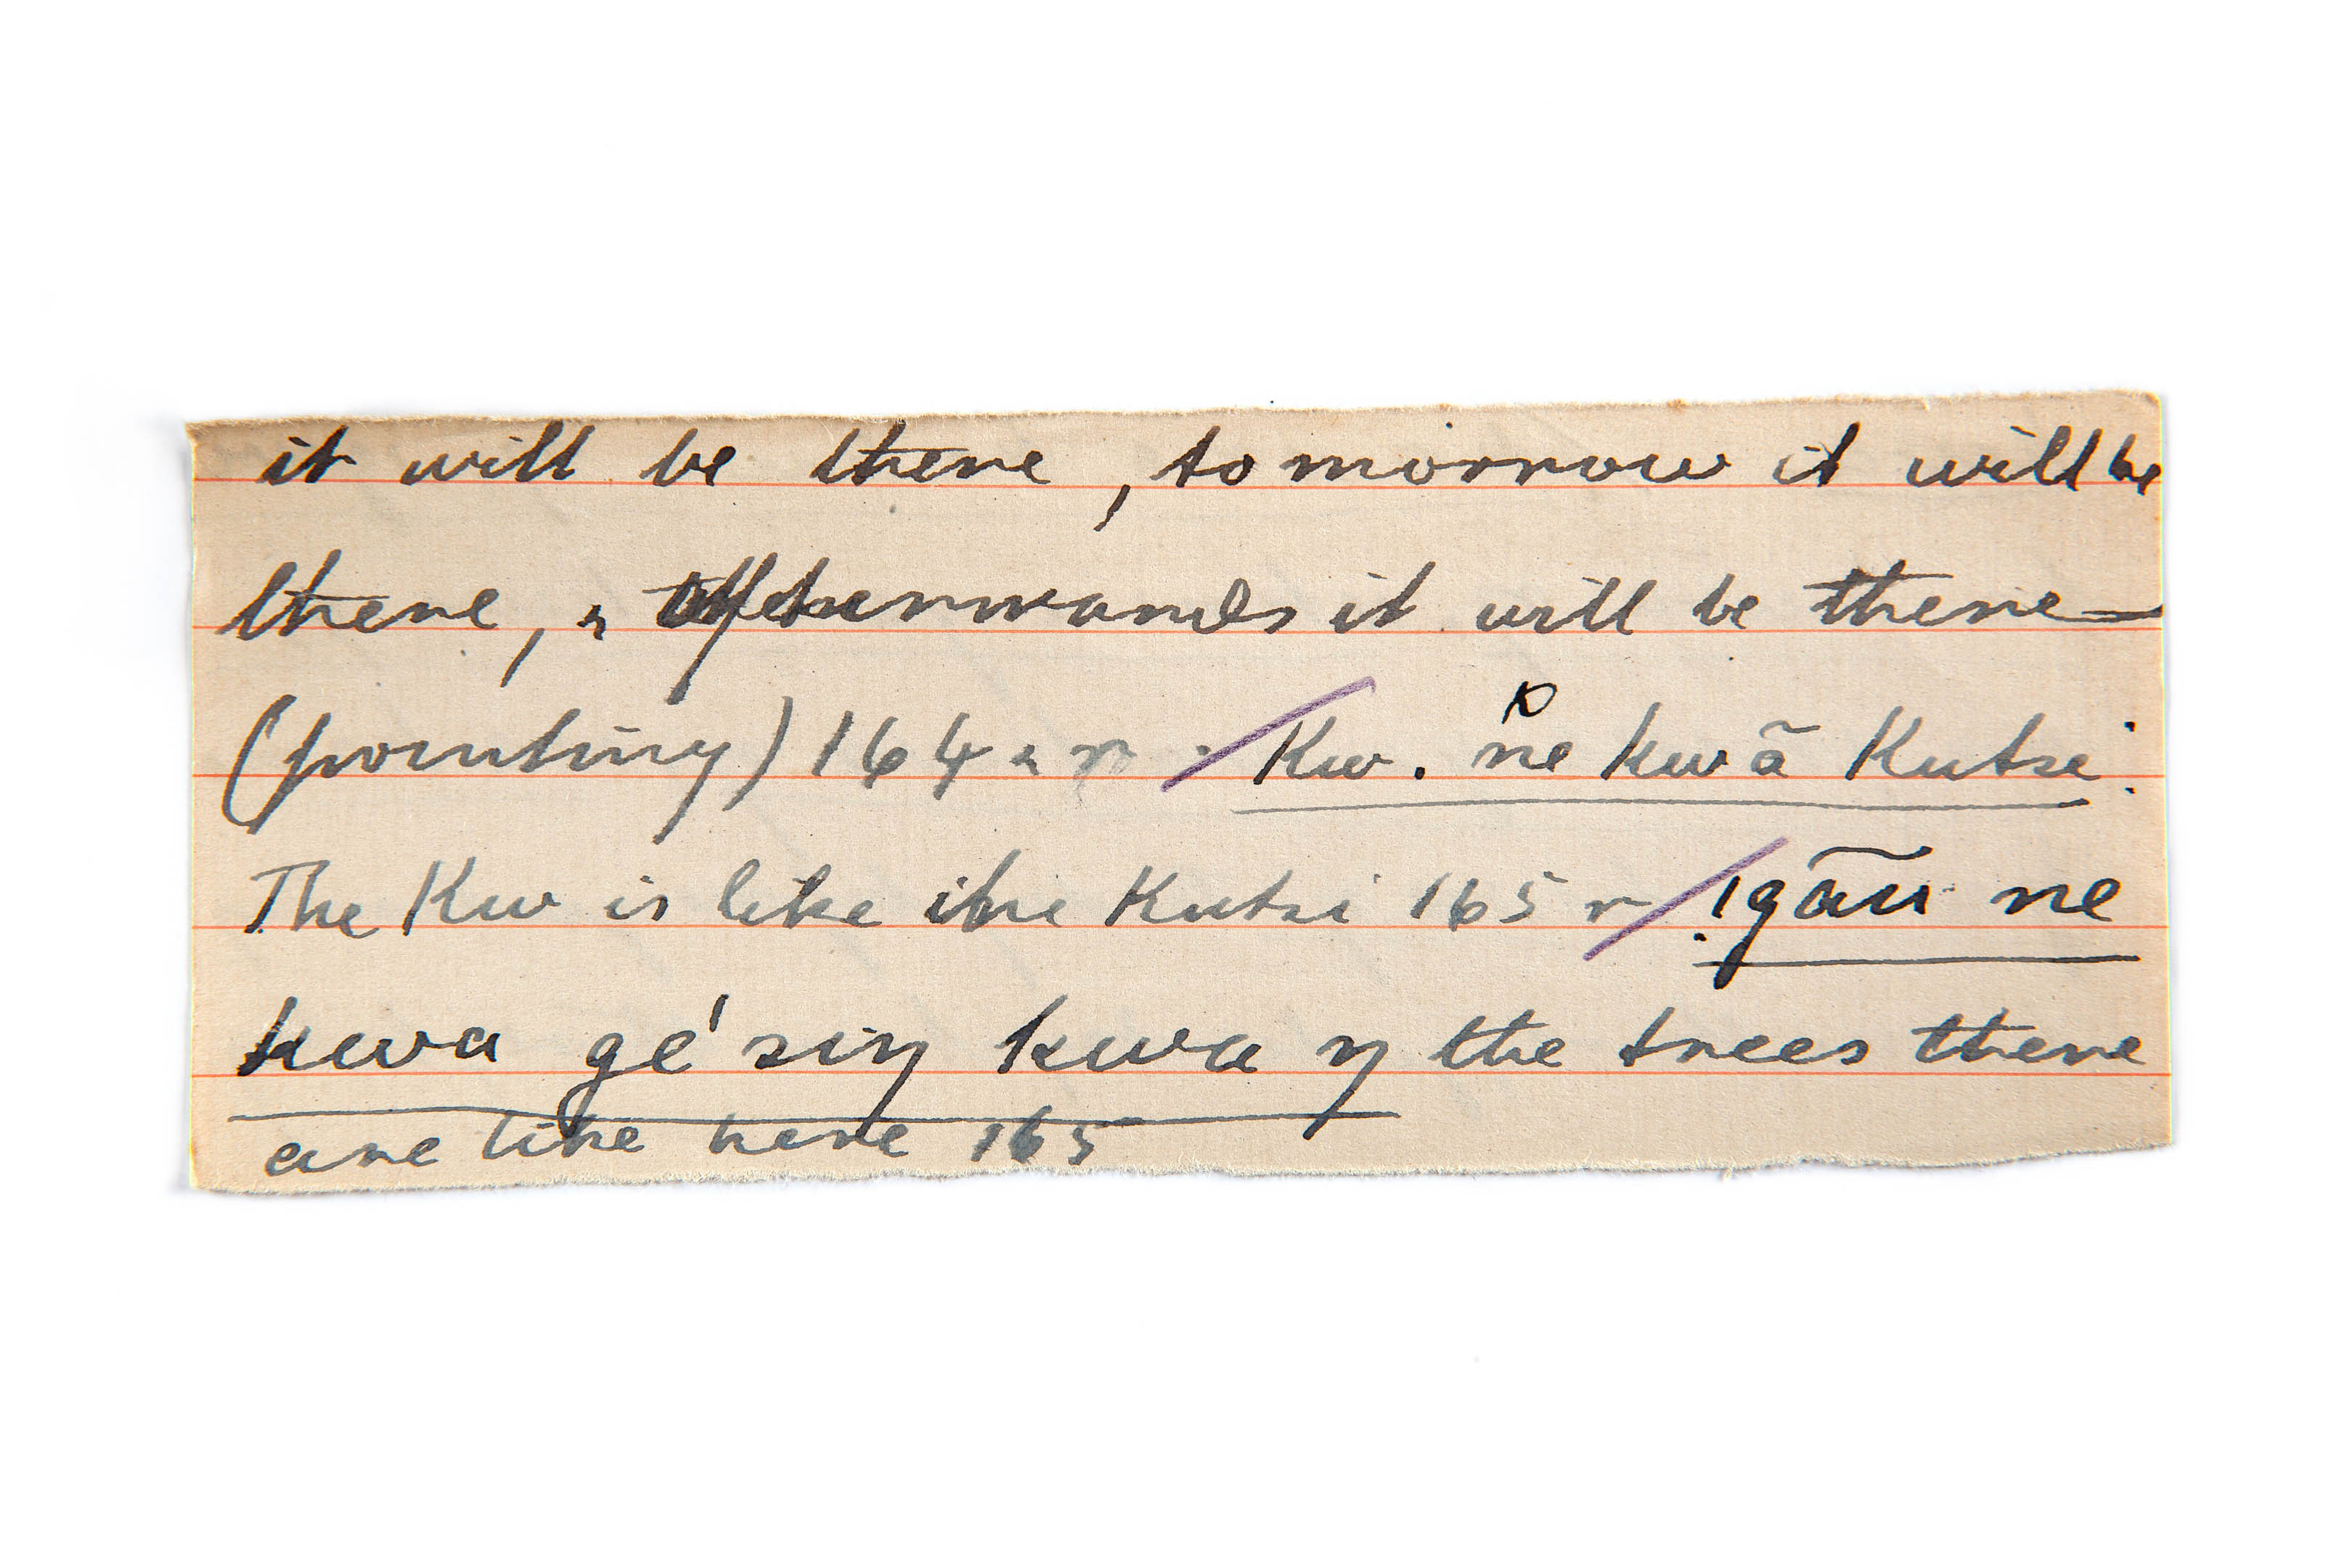 it will be there, tomorrow it will be
there, & afterwards it will be there
(pointing) 164 r. Kw. ne kwã Kutse:
The Kw is like the Kutsi 165 r !gãu ne
kwa gé siŋ kwa ŋ the trees there
are like here 165